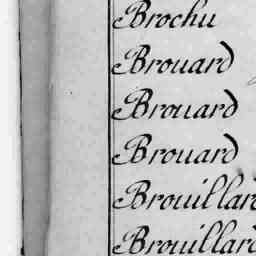 Brochu
Brouard
Brouard
Brouard
Brouillard
Brouillard